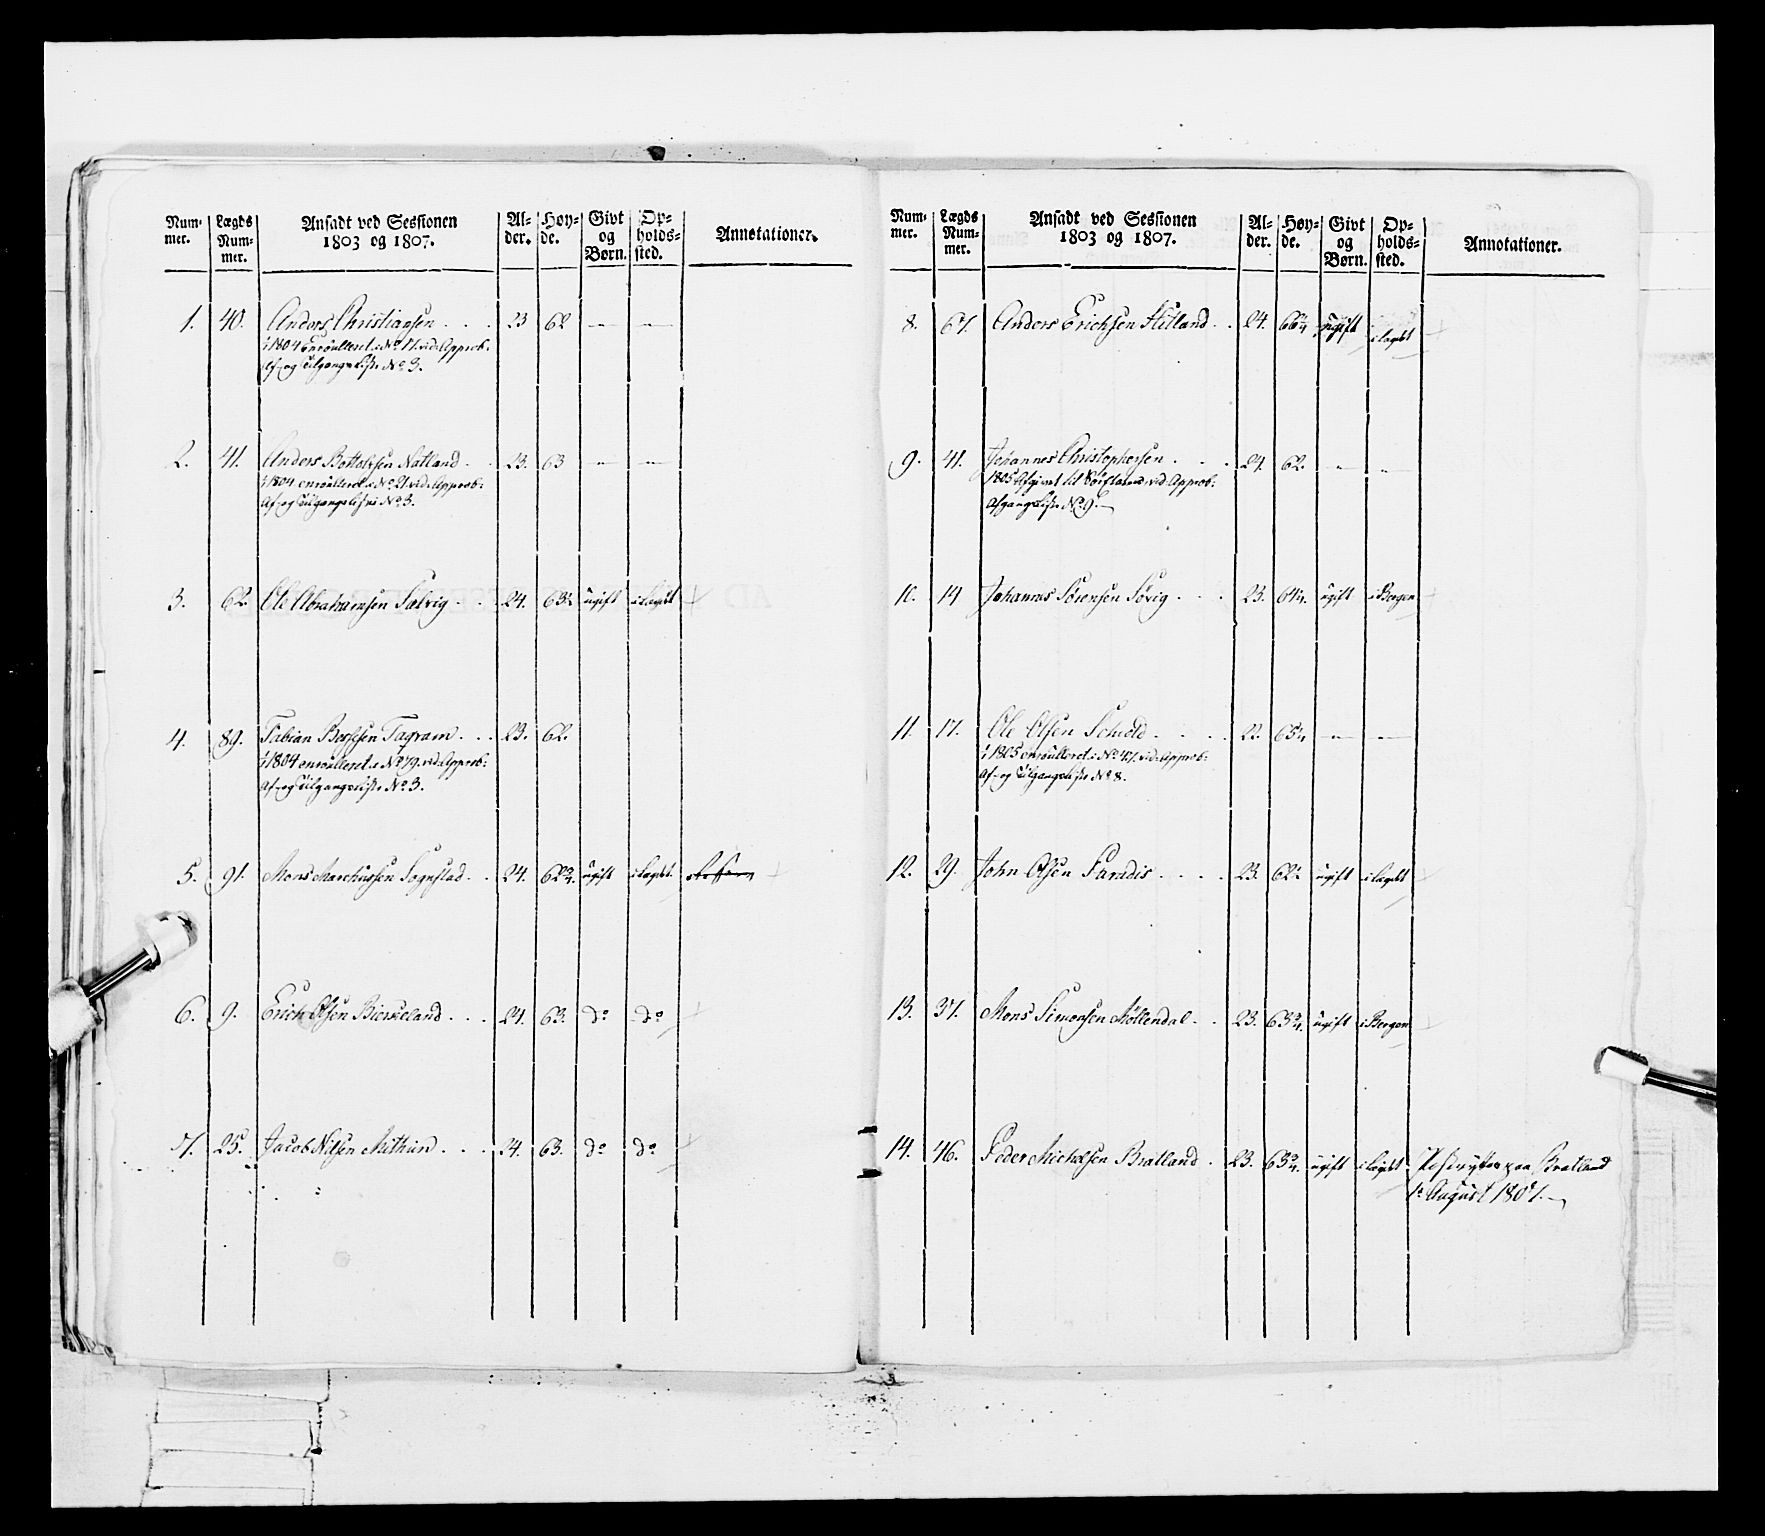 Num- mer. Lægds Num- mer. Ansadt ved Sessionen 1803 og 1807. Al- der. Høy- de. Givt og Børn. Op- holds- sted. Annotationer.
1. 40. Anders Christiansen . . . 23 62 — —
i 1804 enroulleret i No 17. vid: Approb:
Af- og Tilgangs Liste No 3.
2. 41. Anders Bottolfsen Natland . . 23. 63 — —
i 1804 enroulleret i No 21. vid: Approb:
Af- og Tilgangs Liste No 3.
3. 62. Ole Abrahamsen Sælvig . . . 24. 63½ ugift i Lægdet
4. 89. Fabian Bersesen Tagram . . . 23. 62.
i 1804 enroulleret i No 79. vid: Approb:
Af- og Tilgangs Liste No 3.
5. 91. Mons Marchussen Sognstad . . 24. 62¾. ugift i Lægdet.
6. 9. Erich Olsen Birkeland . . . 24. 63. do do
7. 25. Jacob Nilsen Mithun . . . 24. 63. do do
Num- mer. Lægds Num- mer. Ansadt ved Sessionen 1803 og 1807. Al- der. Høy- de. Givt og Børn. Op- holds- sted. Annotationer.
8. 67. Anders Erichsen Hitland . . 24. 66¼ ugift i Lægdet
9. 41. Johannes Christophersen . . . 24. 62. — —
1805 Afgivet til vid: Approb:
Afgangs Liste No 9.
10. 14 Johannes Sørensen Sørig . . . 23. 64¼. ugift i Bergen
11. 17. Ole Olsen Schiold . . . . 22. 65¼ — —
i 1805 enroulleret i No 47. vid: Approb:
Af- og Tilgangs Liste No 8.
12. 29. John Olsen Paradis . . . . 23. 62½ ugift i Lægdet
13. 37. Mons Simonsen Møllendal . . 23. 63¾. ugift i Bergen
14. 46. Peder Michelsen Bratland . 23. 63¾. ugift i Lægdet Postrytter paa Bratland
1e August 1807.